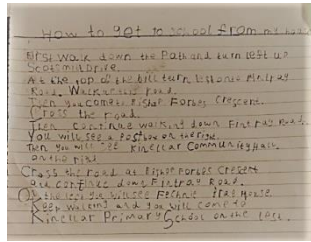 How to got to school from my house
First walk down the Path and turn left up
Scotsmill Drive.
At the top of the hill turn left onto Fintray
Road. Walk up this road.
Then you come to Bishop Forbes Crescent.
Cross the road.
Then continue walking down Fintray Road.
You will see a Postbox on the right.
Then you will see Kinellar Community Hall
on the right
Cross the road at Bishop Forbes Cresent
and continue down Fintray Road.
On the left you will see Fechnie Brae House
Keep walking and you will come to
Kinellar Primary School on the left.